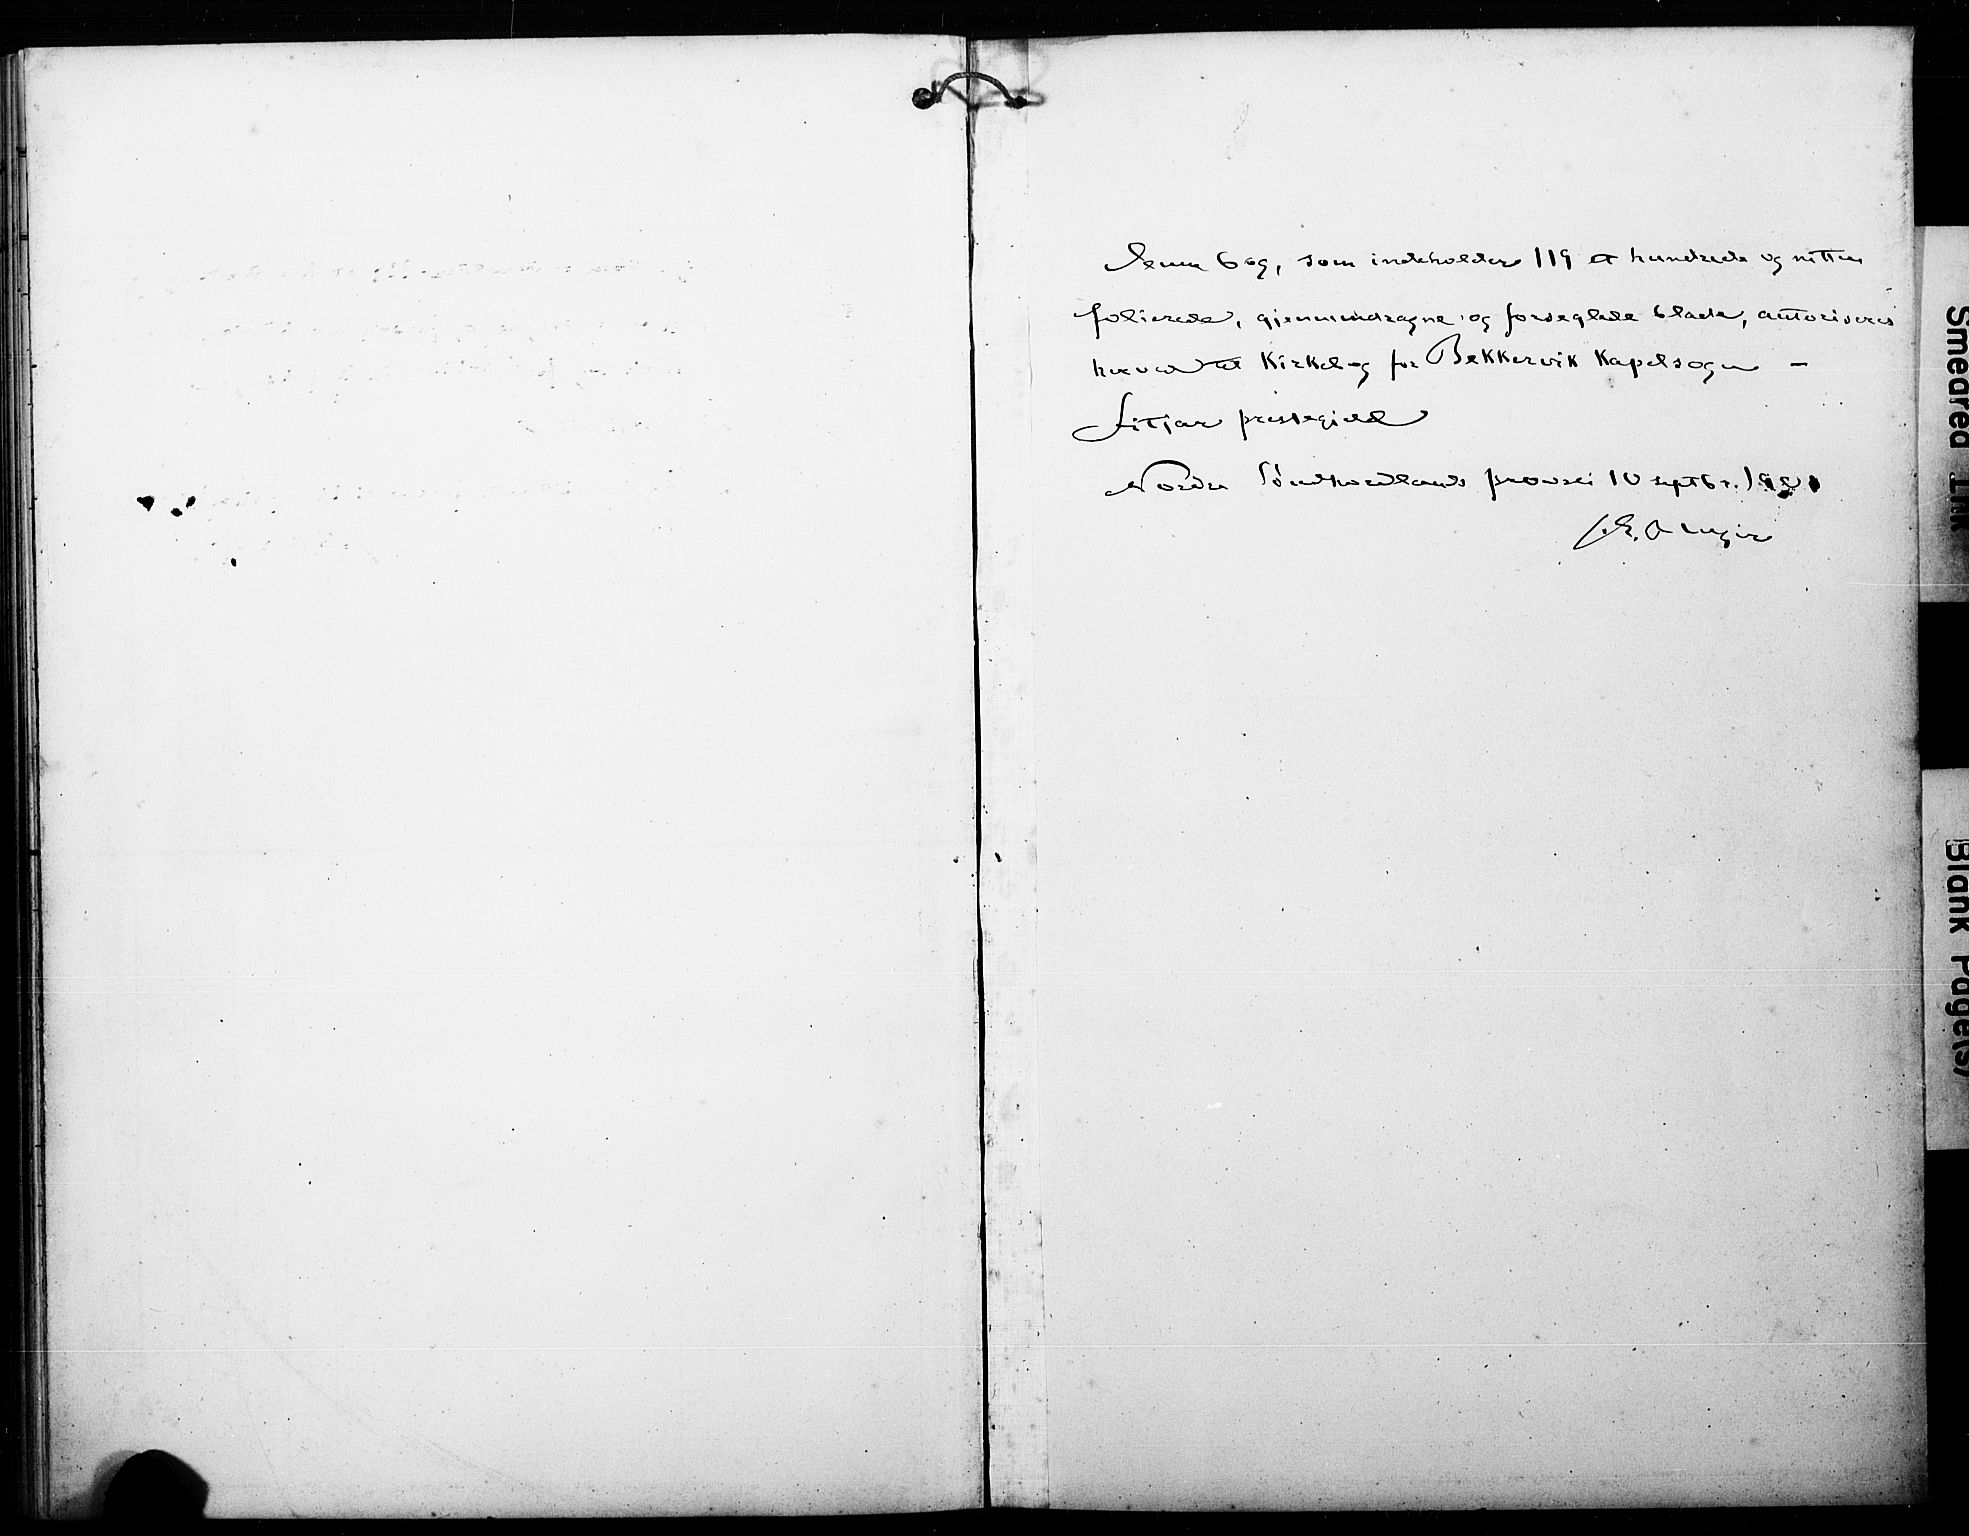 Denne bog, som indeholder 119 et hundrede og nitten
folierede, gjennemdragne og forseglede blade, autoriseres
herved til Kirkebog for Bekkervik Kapelsogn –
Fitjar prestegjeld
Nordre Söndhordlands provsti 10 septbr.
Smeared Ink
Blank Page(s)